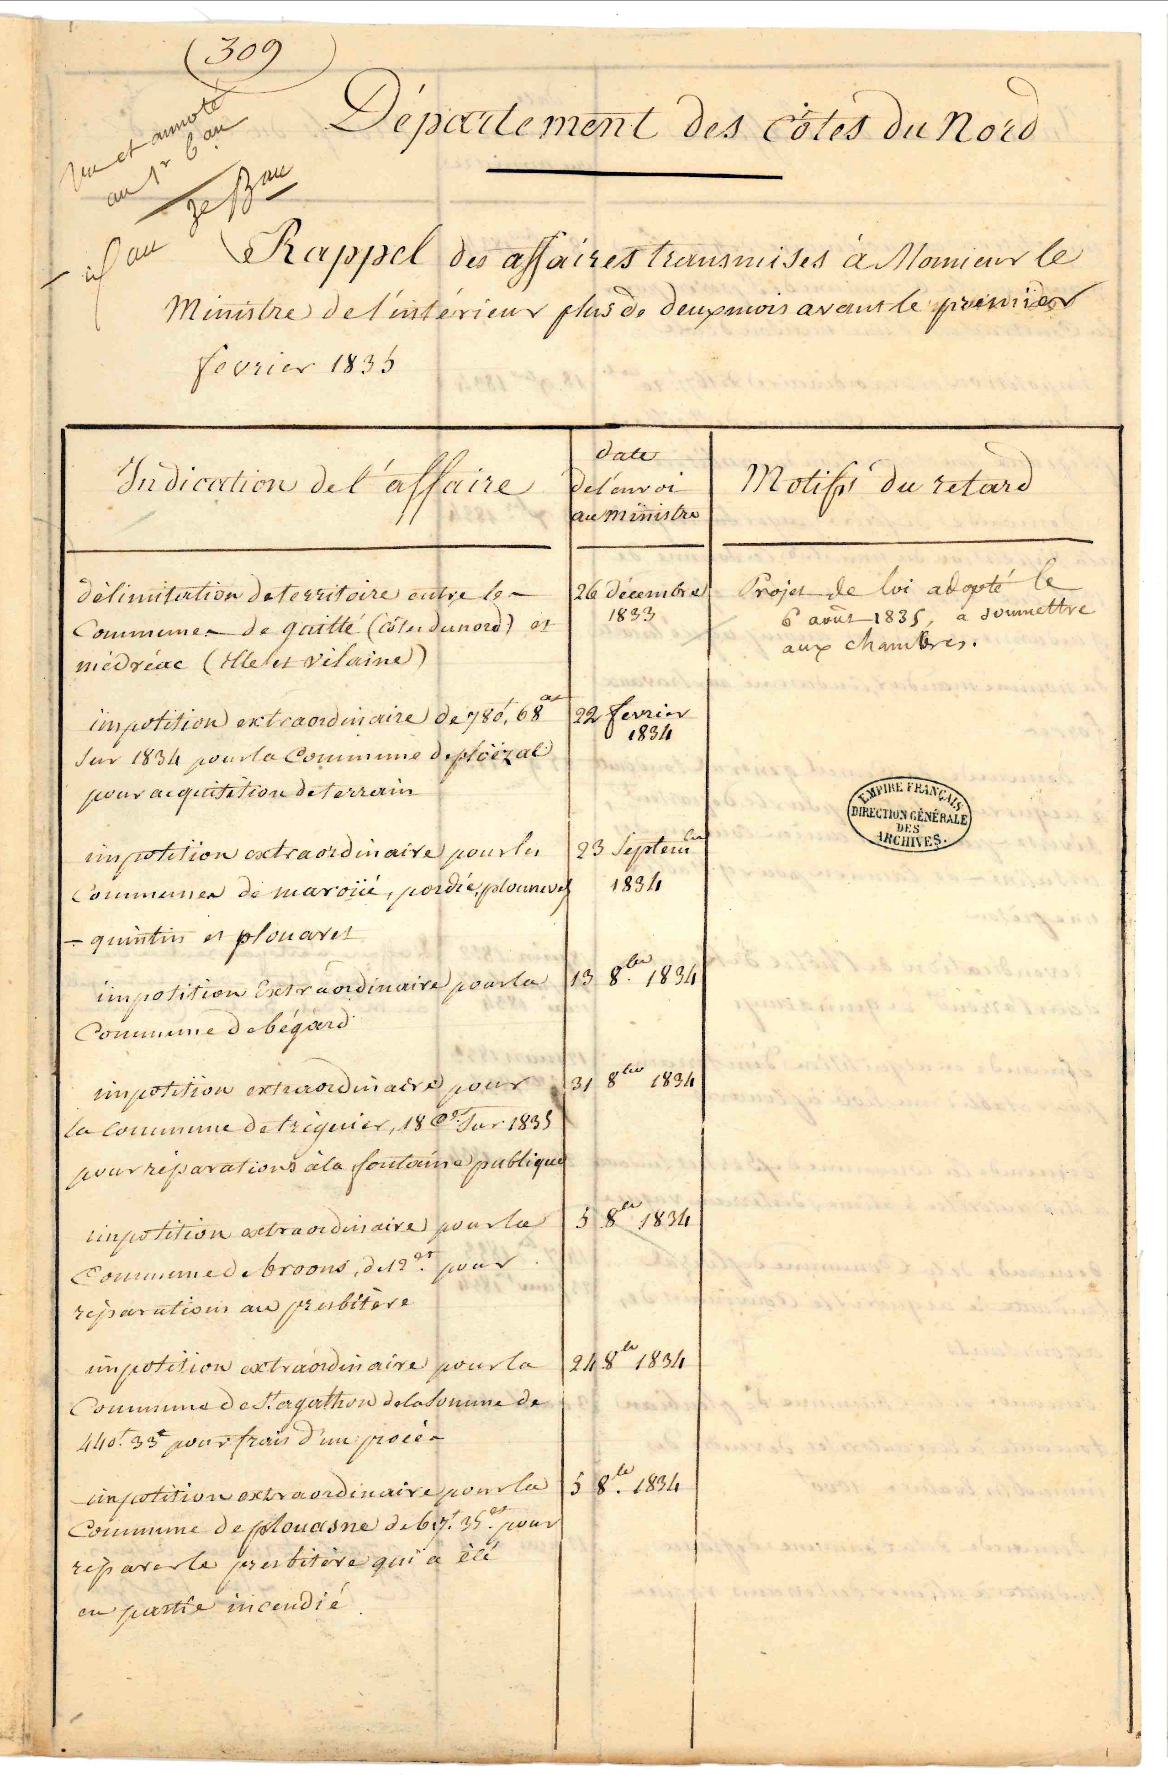 (309)
Vu et annoté
au 1r bau
2e Bau
Département des côtes du Nord
Rappel des affaires transmises à Monsieur le
Ministre de l'intérieur plus de deux mois avant le premier
fevrier 1835
Indication de l'affaire
date
de l'envoi
au ministre
Motifs du retard
délimitation de territoire entre les
Communes de guitté (côtes du nord) et
médréac (ille et vilaine)
26 décembre
1833
Projet de loi adopté le
6 août 1835, à soumettre
aux chambres.
imposition extraordinaire de 78f, 68c
sur 1834 pour la Commune de ploëzal
pour acquisition de terrain
22 fevrier
1834
EMPIRE FRANÇAIS
DIRECTION GÉNÉRALE
DES
ARCHIVES.
imposition extraordinaire pour les
Communes de maroüé, pordic, plounevez
- quintin et plouaret
23 Septembre
1834
imposition Extraordinaire pour la
Commune de bégard
13 8bre 1834
imposition extraordinaire pour
la commune de tréguier, 18 ces sur 1835
pour réparations à la fontaine publique
31 8bre 1834
imposition extraordinaire pour la
Commune de broons, de 12 ces pour
réparations au presbitère
5 8bre 1834
imposition extraordinaire pour la
Commune de St. agathon de la somme de
440f. 33c pour frais d'un procès
24 8bre 1834
imposition extraordinaire pour la
Commune de plouasne de 67f. 35ces pour
réparer le presbitère qui a été
en partie incendié
5 8bre 1834